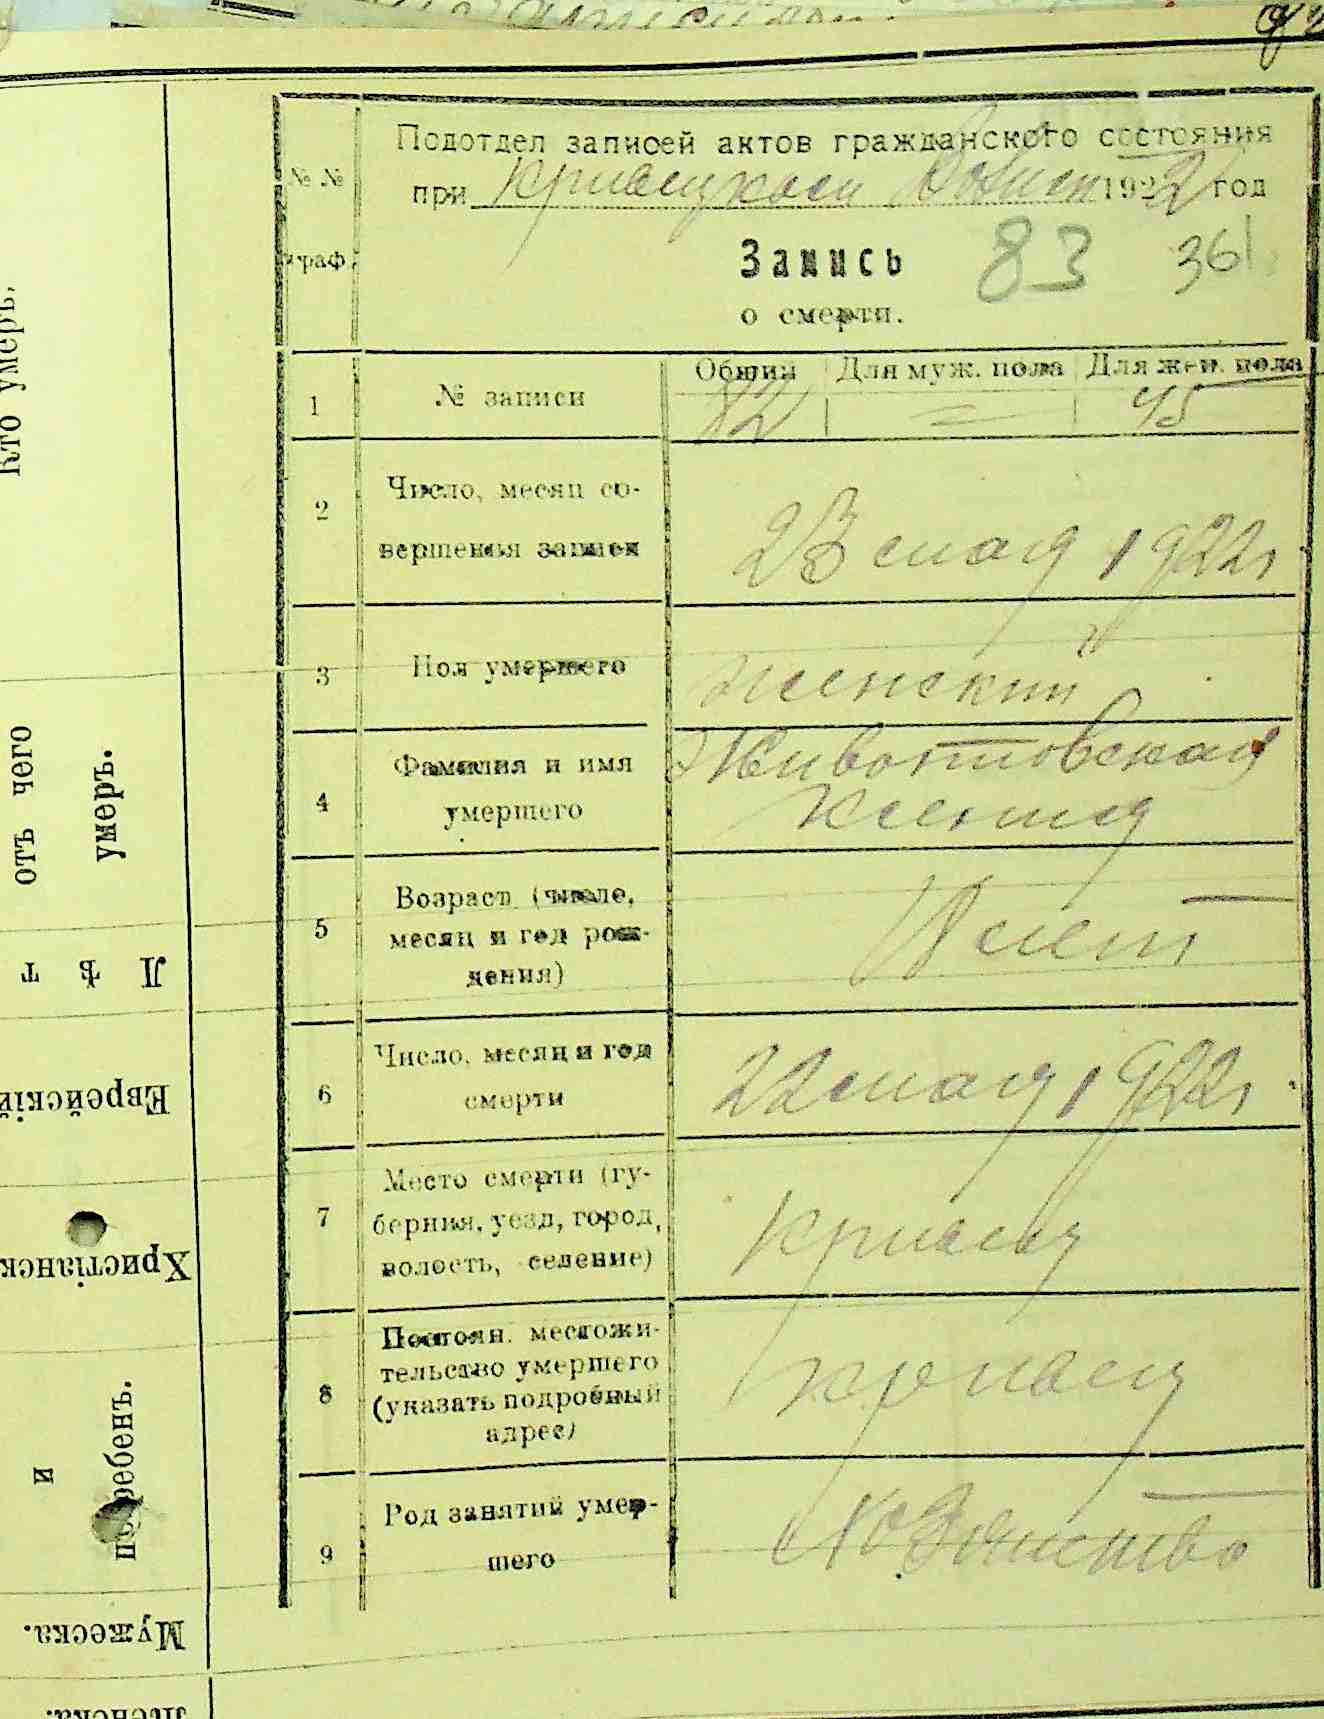 Подотдел записей актов гражданского состояния
при Кривецком 1922 год
№ №
граф.
Запись 83 361
о смерти.
Общий Для муж. пола Для жен. пола
1 № записи 82 = 45
2 Число, месяц со-
вершения записи 23 мая 1922 г
3 Пол умершего женский
4 Фамилия и имя Животовская
умершего Ксения
5 Возраст (число, месяц и год рож-
дения) лет
6 Число, месяц и год
смерти 22 мая 1922 г.
7 Место смерти (гу-
берния, уезд, город,
волость, селение) Кривец
8 Постоян. местожи-
тельство умершего
(указать подробный
адрес) Кривец
9 Род занятий умер-
шего Хозяйство
Кто умеръ,
отъ чего
умеръ.
Лѣт
Еврейскій
Христіанск
и
погребенъ.
Мужеска.
Женска.